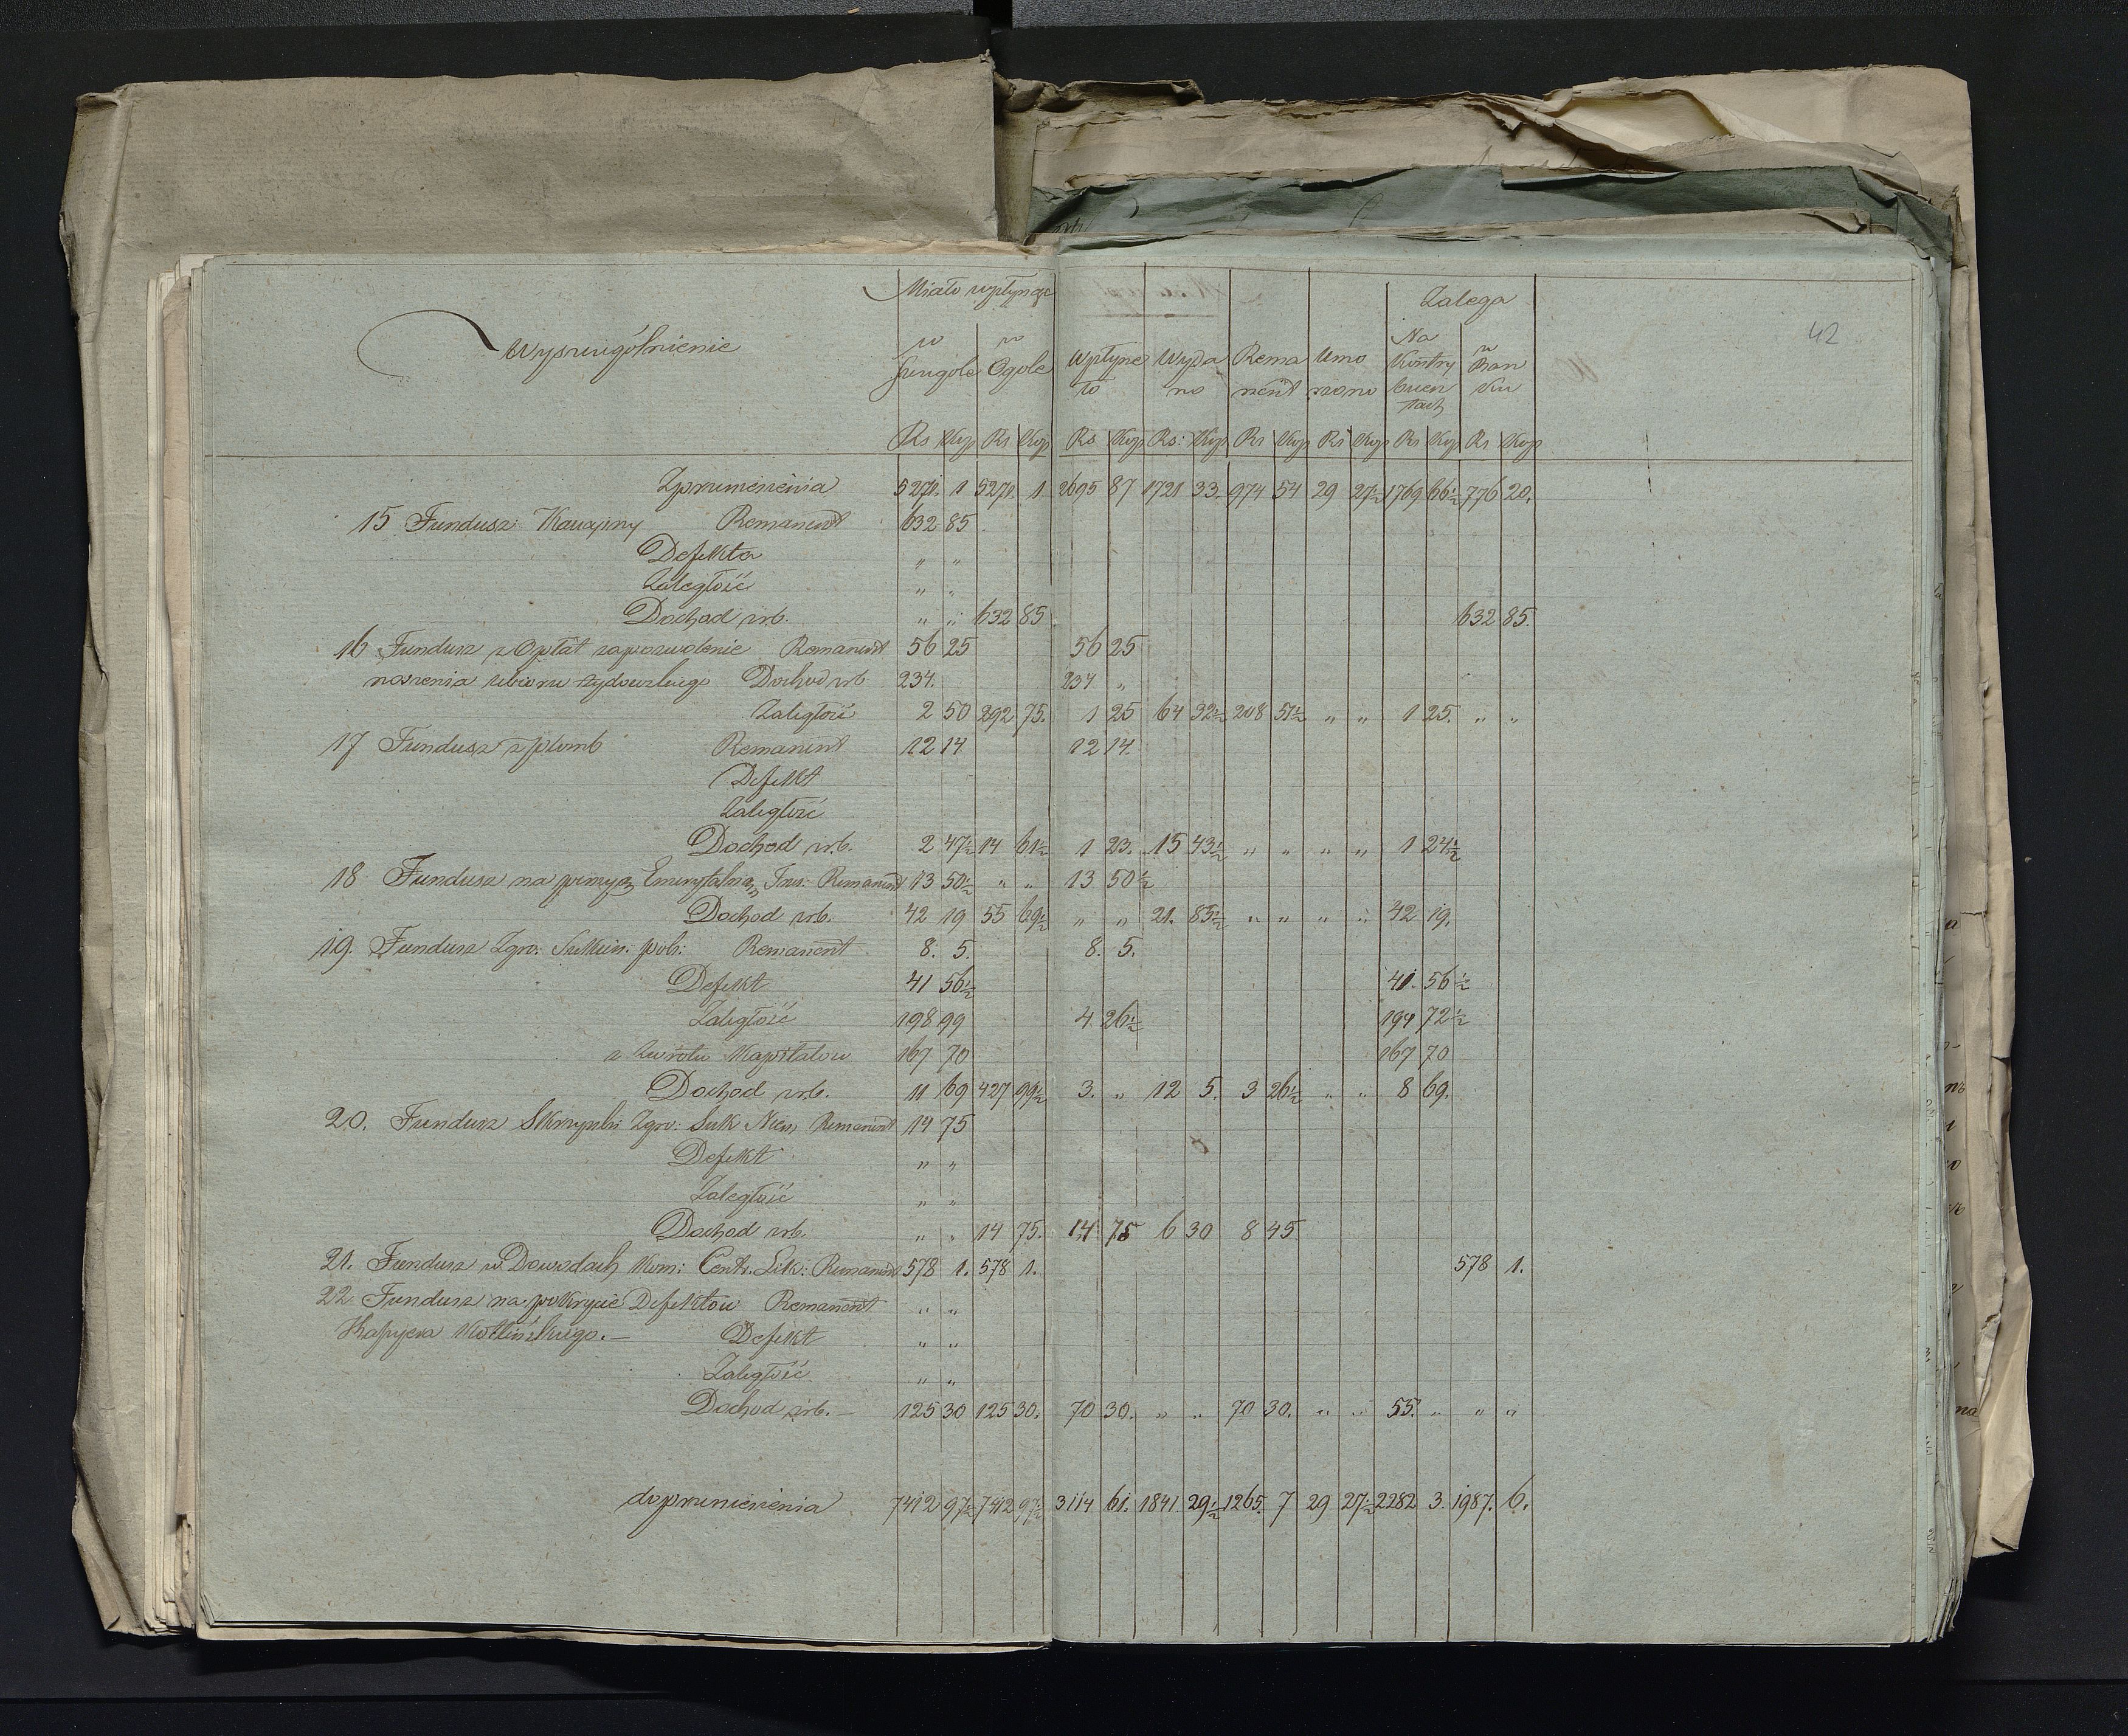 42
Miało wpłynąć Zalega
Wyszczególnienie w Szczególe w Ogole Wpłynęło Wydano Remanent Umorzono Na Kontrybuentach w Banku
Rs Kop Rs Kop Rs Kop Rs: Kop Rs Kop Rs Kop Rs Kop Rs Kop
Zprzeniesienia 5271. 1 5271. 1 2695 87 1721 33. 974 54 29 27½ 1769 66½ 776 20.
15 Fundusz Kaucyiny Remanent 632 85
Defekta „ „
Zaległość „ „
Dochod rb. „ „ 632 85 632 85.
16 Fundusz z Opłat zapozwolenie Remanent 56 25 56 25
noszenia ubioru żydowskiego Dochod rb 234. 234 „
Zaległość 2 50 292 75. 1 25 64 32½ 208 51½ „ „ 1 25. „ „
17 Fundusz z plomb Remanent 12 14 12 14.
Defekt
Zaległość
Dochod rb. 2 47½ 14 61½ 1 23. 15 43½ „ „ „ „ 1 24½
18 Fundusz na Emerytalną Remanent 13 50½ „ „ 13 50½
Dochod rb. 42 19 55 69½ „ „ 21. 85½ „ „ „ „ 42 19.
19. Fundusz Zgro: Sukien: pols: Remanent 8. 5. 8. 5.
Defekt 41 56½ 41. 56½
Zaległość 198 99 4. 26½ 194 72½
z zwrotu Kapitałow 167 70 167 70
Dochod rb. 11 69 427 99½ 3. „ 12 5. 3 26½ „ „ 8 69.
20. Fundusz Skrzynki Zgro: Suk Niem Remanent 14 75
Defekt „ „
Zaległość „ „
Dochod rb. „ „ 14 75. 14 75 6 30 8 45
21. Fundusz w Dowodach Kom: Centr. Lik: Remanent 578 1. 578 1. 578 1.
22 Fundusz na pokrycie Defektow Remanent „ „
Kasyera Kotlińskiego. — Defekt „ „
Zaległość „ „
Dochod rb. — 125 30 125 30. 70 30. „ „ 70 30. „ „ 55. „ „ „
doprzeniesienia 7412 97½ 7412 97½ 3114 61. 1841. 29½ 1265. 7 29 27½ 2282 3. 1987. 6.